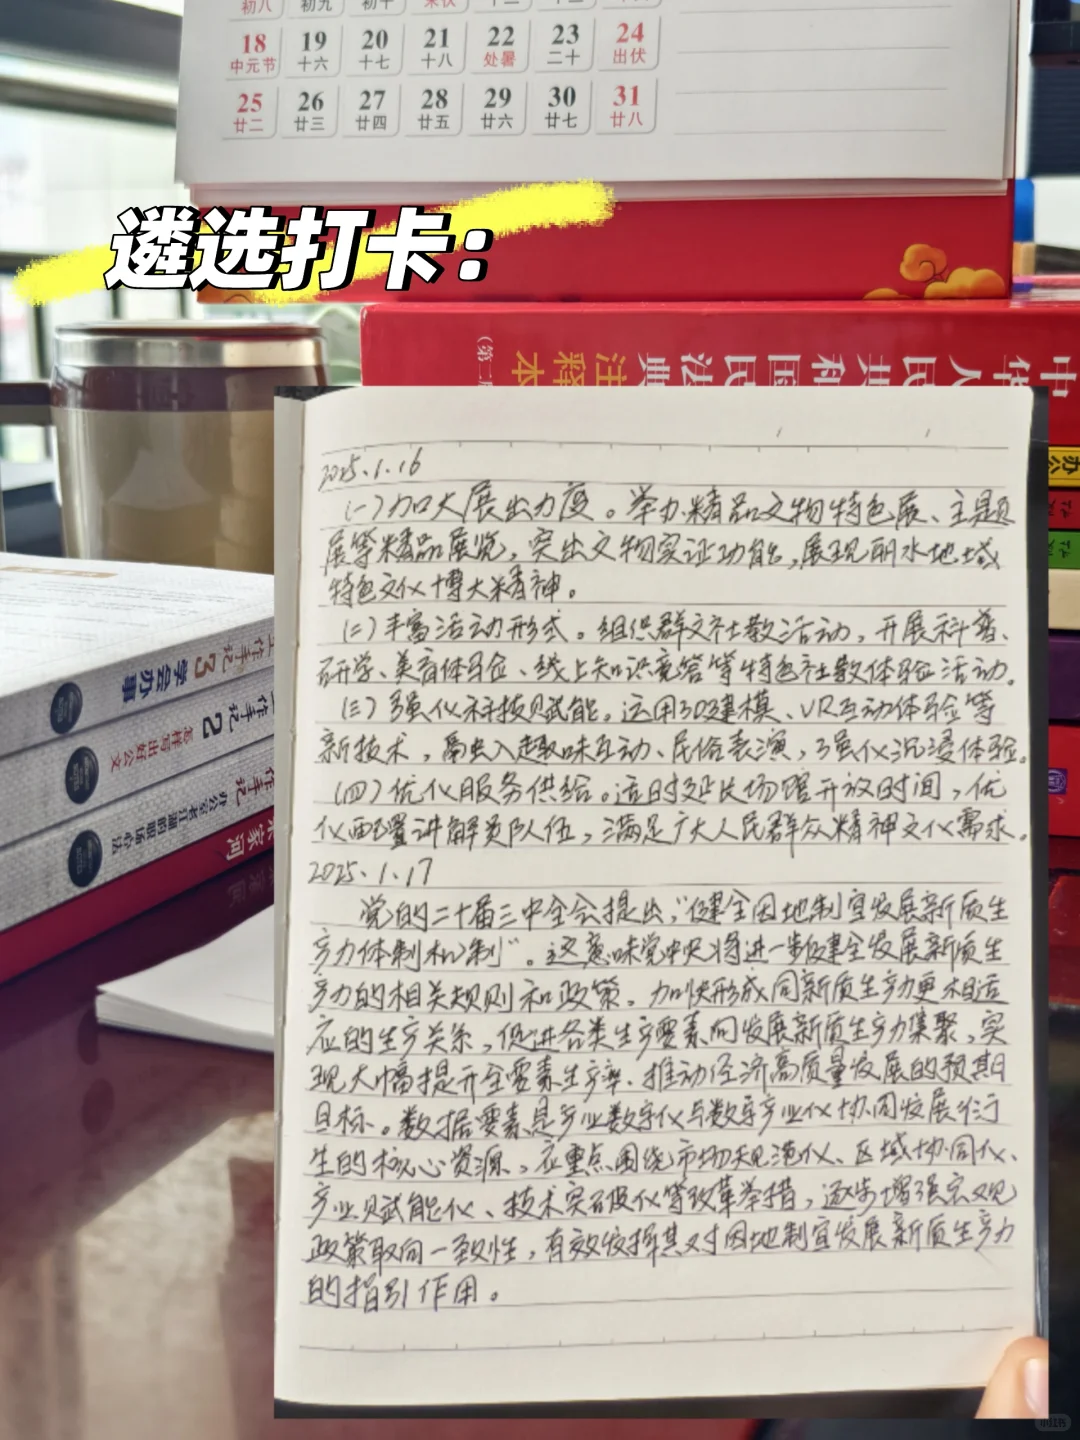 初八 初九 初十 末伏 十二 十三 十四
18 19 20 21 22 23 24
中元节 十六 十七 十八 处暑 二十 出伏
25 26 27 28 29 30 31
廿二 廿三 廿四 廿五 廿六 廿七 廿八
遴选打卡：
中华人民共和国民法典
注释本
(第二
办公
工作手记3
学会办事
工作手记2
怎样写出好公文
作手记
办公室老江湖的职场心法
米家河
2025.1.16
(一)加大展出力度。举办精品文物特色展、主题
展等精品展览，突出文物实证功能，展现丽水地域
特色文化博大精神。
(二)丰富活动形式。组织群文社教活动，开展科普、
研学、美育体验、线上知识竞答等特色社教体验活动。
(三)强化科技赋能。运用3D建模、VR互动体验等
新技术，融入趣味互动、民俗表演，强化沉浸体验。
(四)优化服务供给。适时延长场馆开放时间，优
化配置讲解员队伍，满足广大人民群众精神文化需求。
2025.1.17
党的二十届三中全会提出，“健全因地制宜发展新质生
产力体制机制”。这意味党中央将进一步健全发展新质生
产力的相关规则和政策，加快形成同新质生产力更相适
应的生产关系，促进各类生产要素向发展新质生产力集聚，实
现大幅提升全要素生产率、推动经济高质量发展的预期
目标。数据要素是产业数字化与数字产业化协同发展衍
生的核心资源，应重点围绕市场规范化、区域协同化、
产业赋能化、技术突破化等改革举措，逐步增强宏观
政策取向一致性，有效发挥其对因地制宜发展新质生产力
的指引作用。